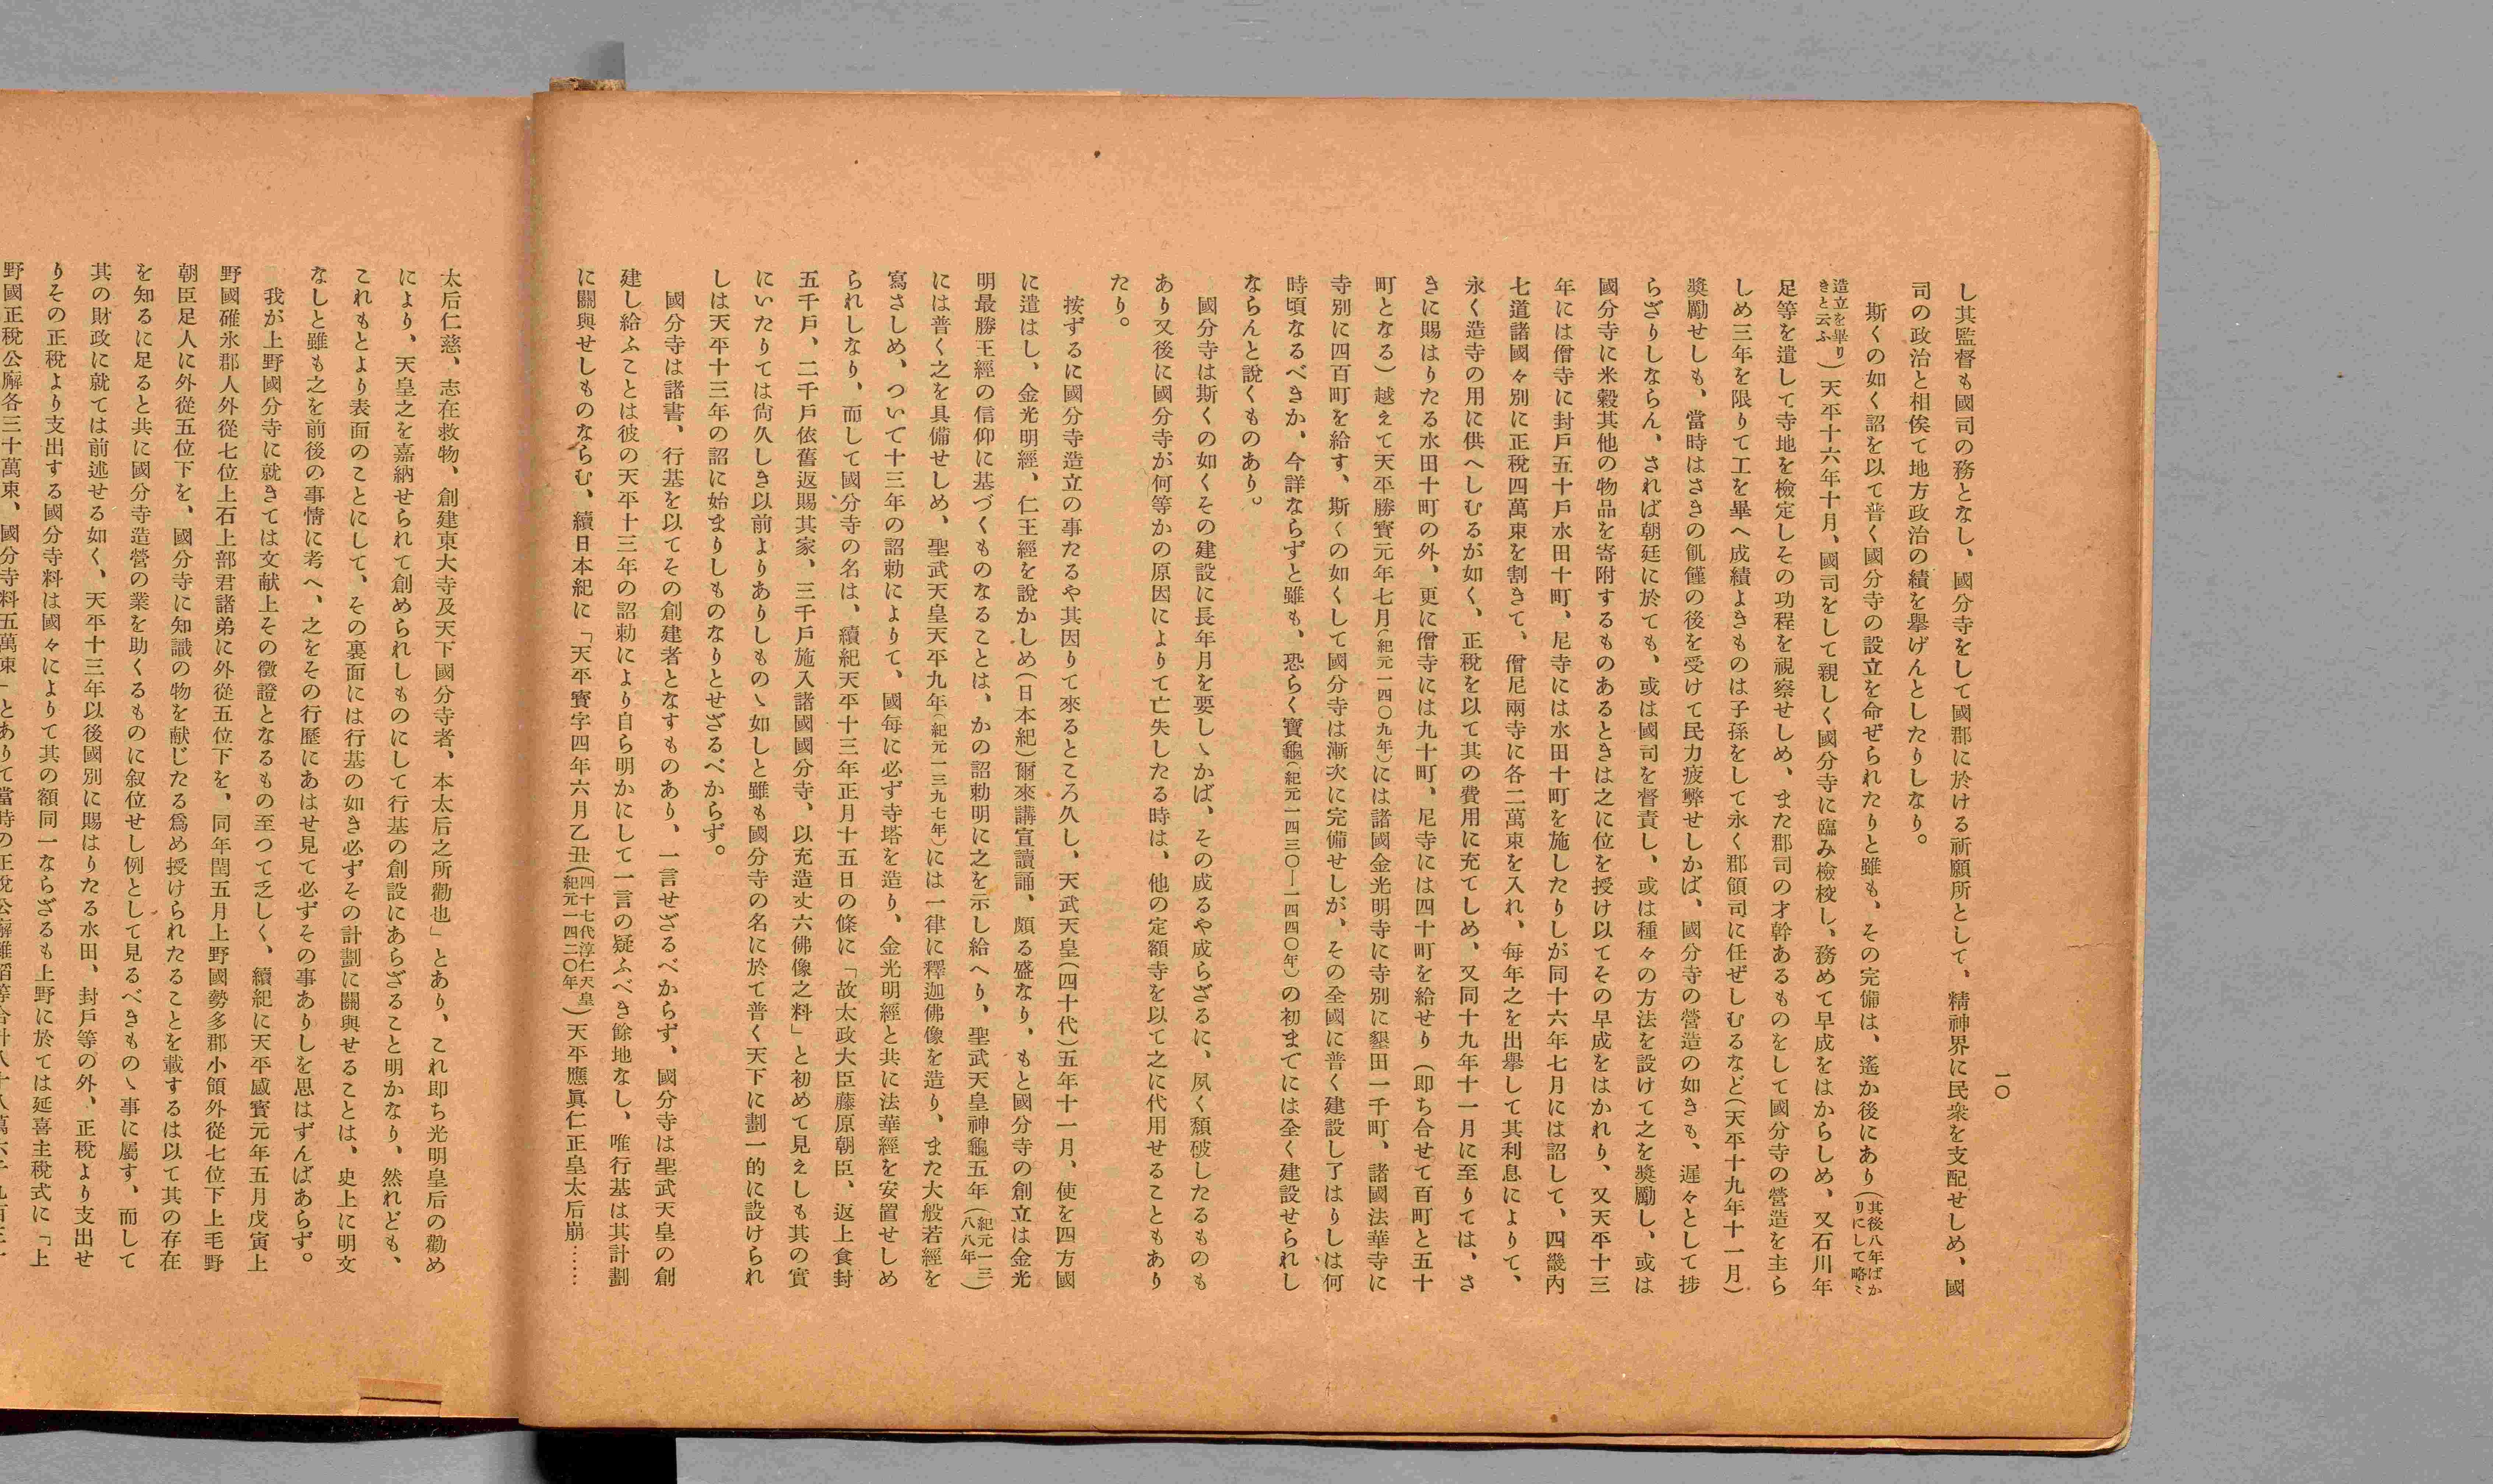 一〇
し其監督も國司の務となし、國分寺をして國郡に於ける祈願所として、精神界に民衆を支配せしめ、國
司の政治と相俟て地方政治の績を擧げんとしたりしなり。
斯くの如く詔を以て普く國分寺の設立を命ぜられたりと雖も、その完備は、遙か後にあり(其後八年ばかりにして略ミ
造立を畢りきと云ふ)天平十六年十月、國司をして親しく國分寺に臨み檢校し、務めて早成をはからしめ、又石川年
足等を遣して寺地を檢定しその功程を視察せしめ、また郡司の才幹あるものをして國分寺の營造を主ら
しめ三年を限りて工を畢へ成績よきものは子孫をして永く郡領司に任ぜしむるなど(天平十九年十一月)
奬勵せしも、當時はさきの飢饉の後を受けて民力疲弊せしかば、國分寺の營造の如きも、遲々として捗
らざりしならん、されば朝廷に於ても、或は國司を督責し、或は種々の方法を設けて之を奬勵し、或は
國分寺に米穀其他の物品を寄附するものあるときは之に位を授け以てその早成をはかれり、又天平十三
年には僧寺に封戶五十戶水田十町、尼寺には水田十町を施したりしが同十六年七月には詔して、四畿內
七道諸國々別に正稅四萬束を割きて、僧尼兩寺に各二萬束を入れ、每年之を出擧して其利息によりて、
永く造寺の用に供へしむるが如く、正稅を以て其の費用に充てしめ、又同十九年十一月に至りては、さ
きに賜はりたる水田十町の外、更に僧寺には九十町、尼寺には四十町を給せり(即ち合せて百町と五十
町となる)越えて天平勝寶元年七月(紀元一四〇九年)には諸國金光明寺に寺別に墾田一千町、諸國法華寺に
寺別に四百町を給す、斯くの如くして國分寺は漸次に完備せしが、その全國に普く建設し了はりしは何
時頃なるべきか、今詳ならずと雖も、恐らく寶龜(紀元一四三〇―一四四〇年)の初までには全く建設せられし
ならんと說くものあり。
國分寺は斯くの如くその建設に長年月を要しゝかば、その成るや成らざるに、夙く頽破したるものも
あり又後に國分寺が何等かの原因によりて亡失したる時は、他の定額寺を以て之に代用せることもあり
たり。
按ずるに國分寺造立の事たるや其因りて來るところ久し、天武天皇(四十代)五年十一月、使を四方國
に遣はし、金光明經、仁王經を說かしめ(日本紀)爾來講宣讀誦、頗る盛なり、もと國分寺の創立は金光
明最勝王經の信仰に基づくものなることは、かの詔勅明に之を示し給へり、聖武天皇神龜五年(紀元一三八八年)
には普く之を具備せしめ、聖武天皇天平九年(紀元一三九七年)には一律に釋迦佛像を造り、また大般若經を
寫さしめ、ついて十三年の詔勅によりて、國每に必ず寺塔を造り、金光明經と共に法華經を安置せしめ
られしなり、而して國分寺の名は、續紀天平十三年正月十五日の條に「故太政大臣藤原朝臣、返上食封
五千戶、二千戶依舊返賜其家、三千戶施入諸國國分寺、以充造丈六佛像之料」と初めて見えしも其の實
にいたりては尙久しき以前よりありしものゝ如しと雖も國分寺の名に於て普く天下に劃一的に設けられ
しは天平十三年の詔に始まりしものなりとせざるべからず。
國分寺は諸書、行基を以てその創建者となすものあり、一言せざるべからず、國分寺は聖武天皇の創
建し給ふことは彼の天平十三年の詔勅により自ら明かにして一言の疑ふべき餘地なし、唯行基は其計劃
に關與せしものならむ、續日本紀に「天平寶字四年六月乙丑(四十七代淳仁天皇紀元一四二〇年)天平應眞仁正皇太后崩……
太后仁慈、志在救物、創建東大寺及天下國分寺者、本太后之所勸也」とあり、これ即ち光明皇后の勸め
により、天皇之を嘉納せられて創められしものにして行基の創設にあらざること明かなり、然れども、
これもとより表面のことにして、その裏面には行基の如き必ずその計劃に關與せることは、史上に明文
なしと雖も之を前後の事情に考へ、之をその行歷にあはせ見て必ずその事ありしを思はずんばあらず。
我が上野國分寺に就きては文献上その徵證となるもの至つて乏しく、續紀に天平感寶元年五月戊寅上
野國碓氷郡人外從七位上石上部君諸弟に外從五位下を、同年閏五月上野國勢多郡小領外從七位下上毛野
朝臣足人に外從五位下を、國分寺に知識の物を献じたる爲め授けられたることを載するは以て其の存在
を知るに足ると共に國分寺造營の業を助くるものに叙位せし例として見るべきものゝ事に屬す、而して
其の財政に就ては前述せる如く、天平十三年以後國別に賜はりたる水田、封戶等の外、正稅より支出せ
りその正稅より支出する國分寺料は國々によりて其の額同一ならざるも上野に於ては延喜主稅式に「上
野國正稅公廨各三十萬束、國分寺料五萬束」とありて當時の正稅公廨雜稻等合計八十八萬六千九百三十